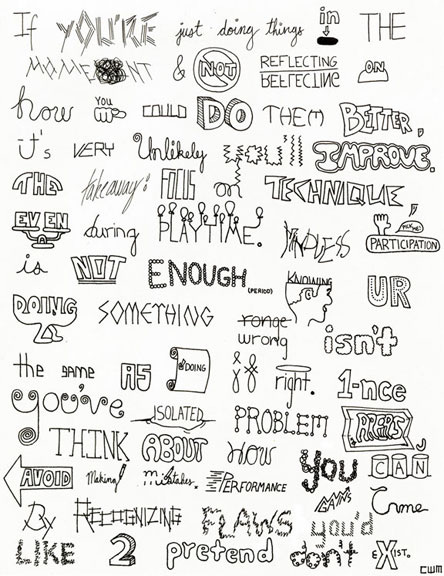 If YOU'RE just doing things in THE
MOMENT & NOT REFLECTING ON
how YOU COULD DO THEM BETTER,
it's VERY Unlikely you'll IMPROVE.
THE takeaway: FOCUS on TECHNIQUE,
EVEN during PLAYTIME. MINDLESS PICK ME! PARTICIPATION
is NOT ENOUGH (PERIOD) KNOWING UR
DOING SOMETHING ronge wrong isn't
the same AS DOING it right. 1-nce
you've ISOLATED PROBLEM AREAS,
THINK ABOUT HOW YOU CAN
AVOID Making mistakes. PERFORMANCE GAINS Come
By RECOGNIZING FLAWS you'd
LIKE 2 pretend don't EXIST.
CWM